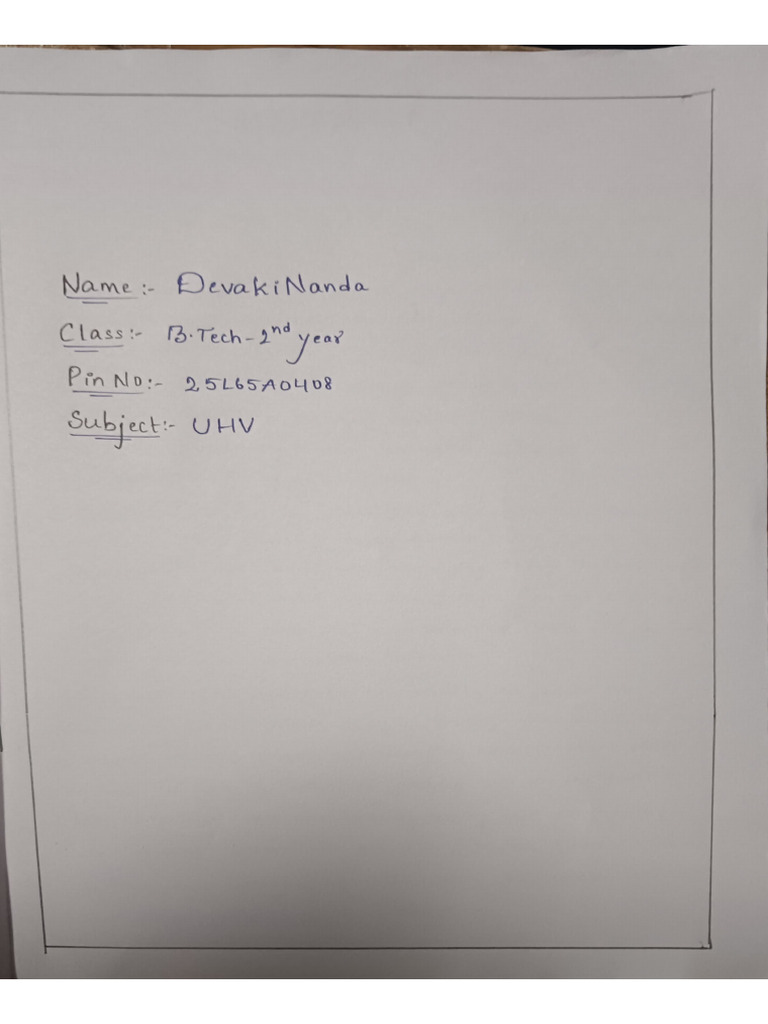 Name:- Devaki Nanda
Class:- B.Tech-2nd year
Pin No:- 25L65A0408
Subject:- UHV